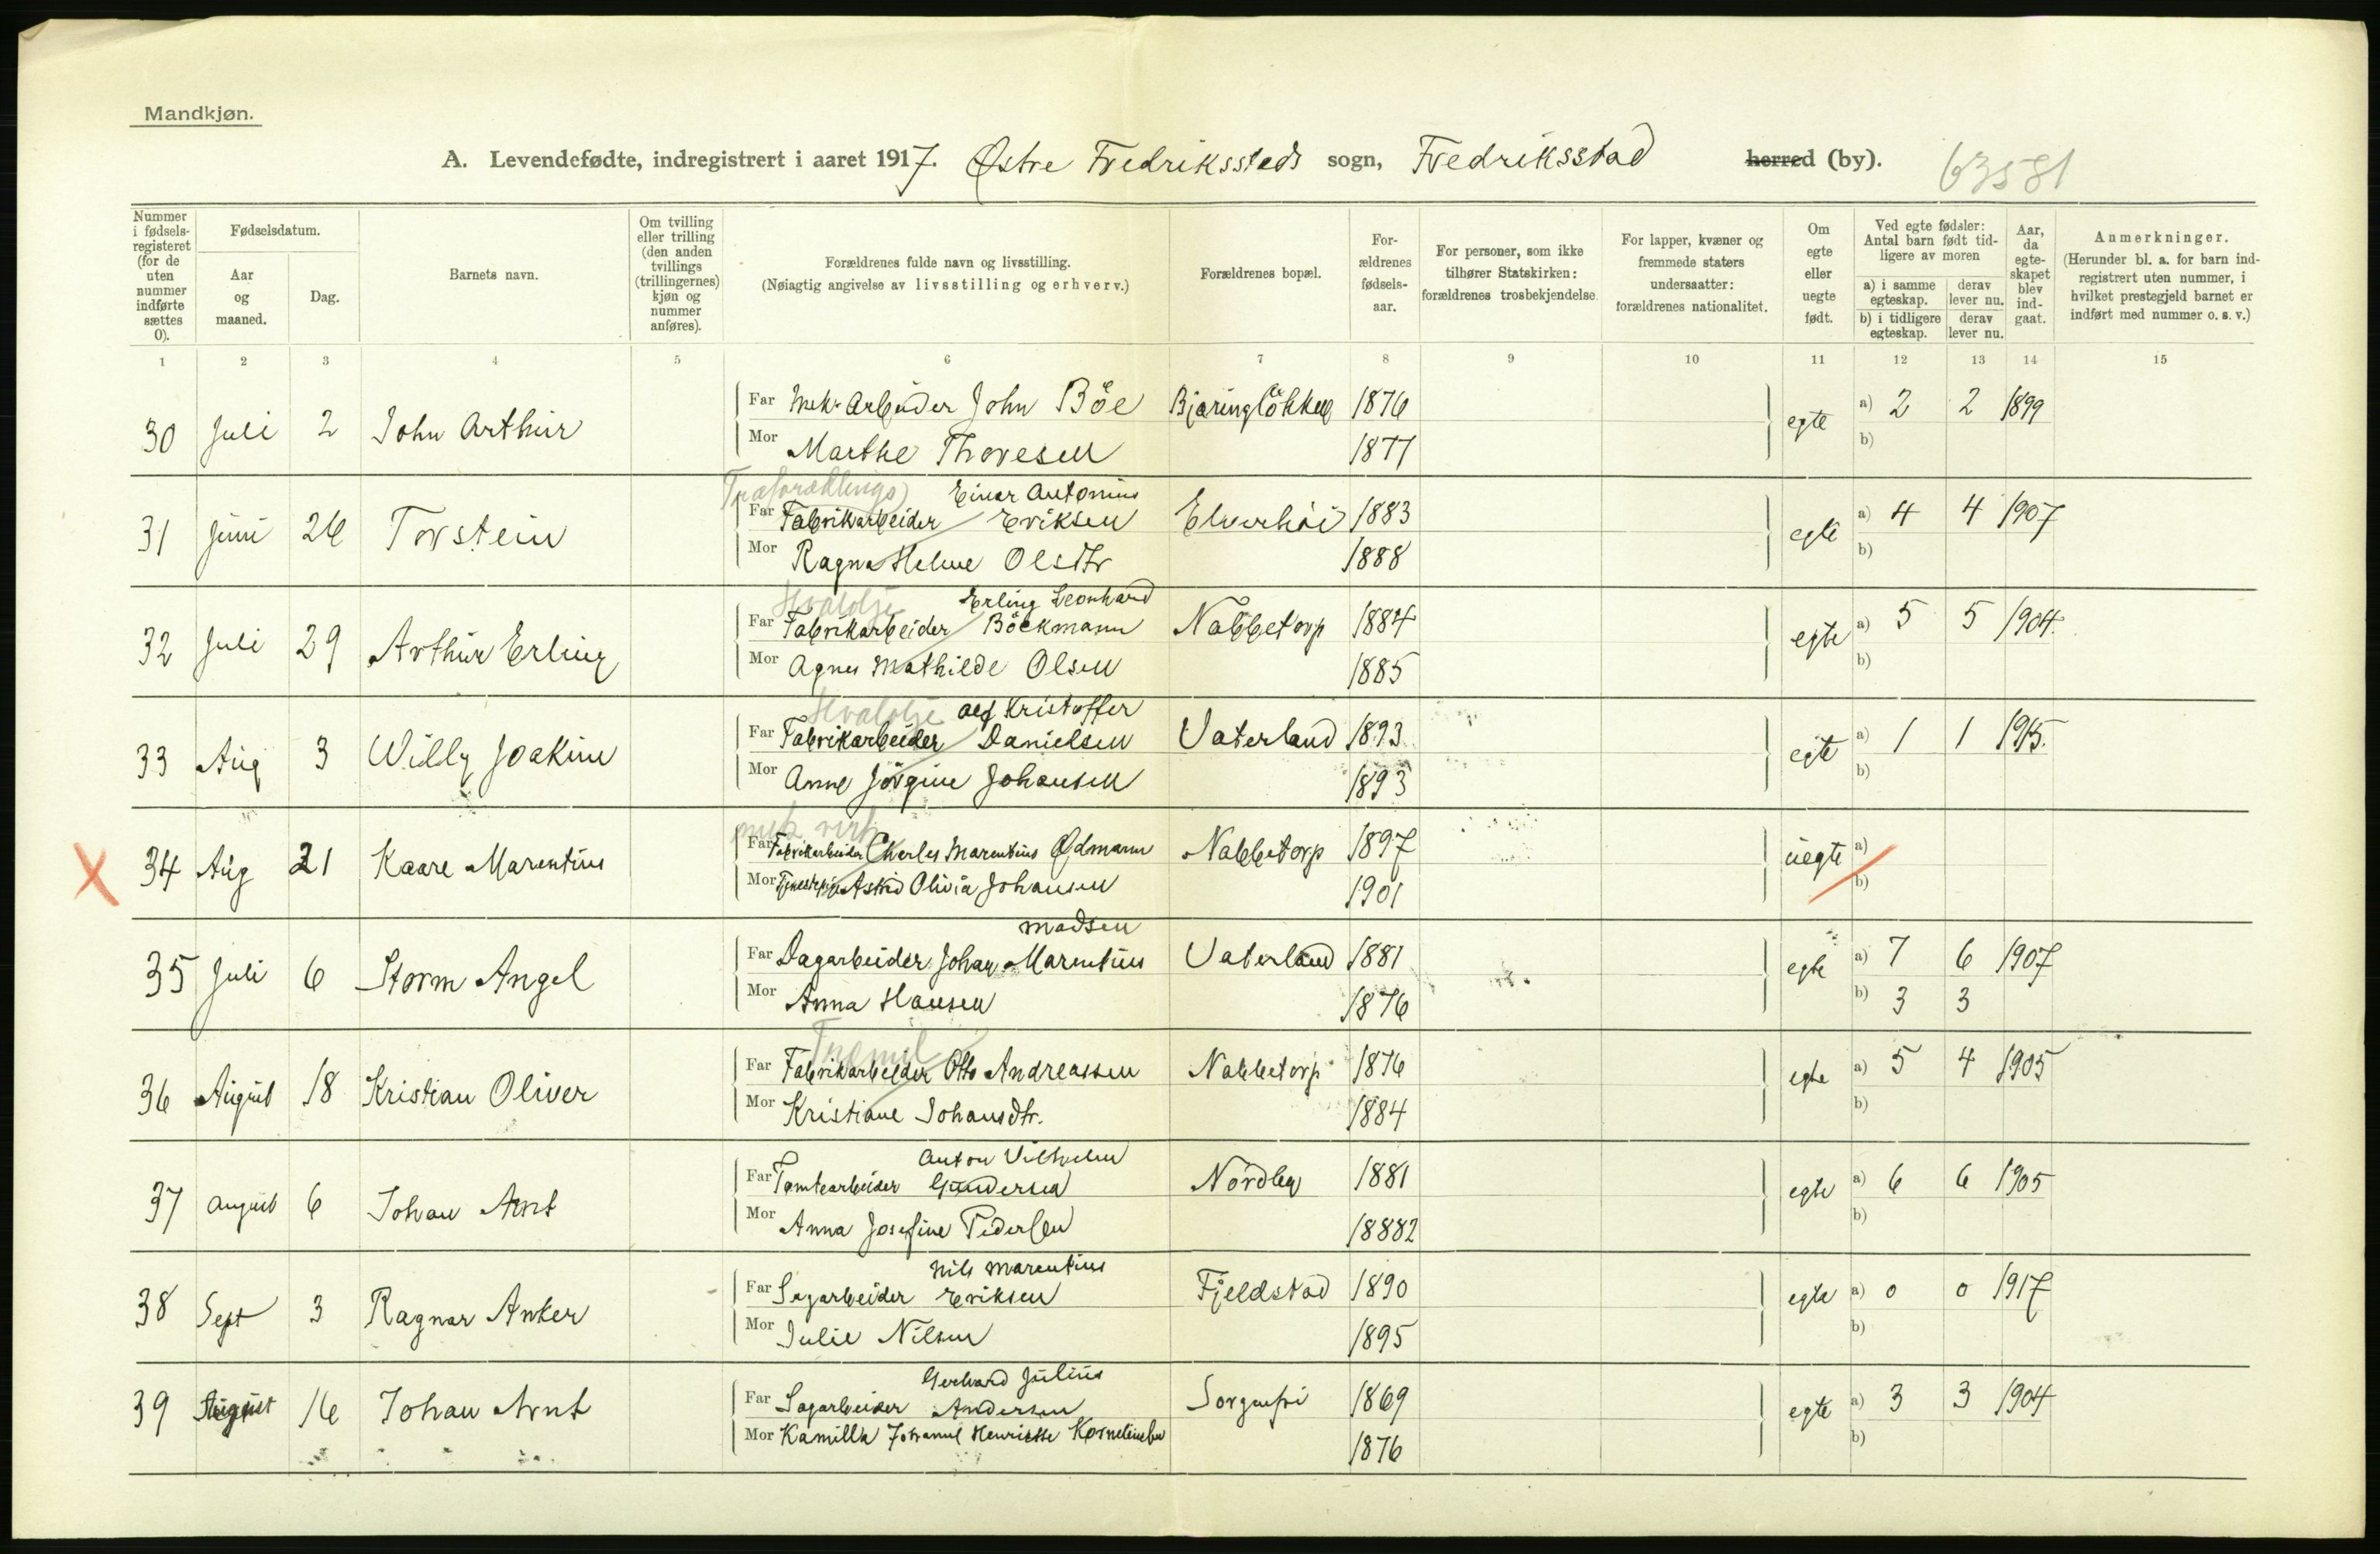 Mandkjøn.
A. Levendefødte, indregistrert i aaret 1917. Østre Fredriksstads sogn, Fredriksstad herred (by). 63581
Nummer i fødselsregisteret (for de uten nummer indførte sættes 0).
Fødselsdatum.
Aar og maaned.
Dag.
Barnets navn.
Om tvilling eller trilling (den anden tvillings (trillingernes) kjøn og nummer anføres).
Forældrenes fulde navn og livsstilling.
(Nøiagtig angivelse av livsstilling og erhverv.)
Forældrenes bopæl.
Forældrenes fødselsaar.
For personer, som ikke tilhører Statskirken: forældrenes trosbekjendelse.
For lapper, kvæner og fremmede staters undersaatter: forældrenes nationalitet.
Om egte eller uegte født.
Ved egte fødsler: Antal barn født tidligere av moren
a) i samme egteskap. derav lever nu.
b) i tidligere egteskap. derav lever nu.
Aar, da egteskapet blev indgaat.
Anmerkninger.
(Herunder bl. a. for barn indregistrert uten nummer, i hvilket prestegjeld barnet er indført med nummer o. s. v.)
1 2 3 4 5 6 7 8 9 10 11 12 13 14 15
30 Juli 2 John Arthur Far Mek. Arbeider John Böe 1876 egte a) 2 2 1899
Mor Marthe Thoresen 1877 b)
Træforædlings Einar Antonius
31 Juni 26 Torstein Far Fabrikarbeider Eriksen Elverhöi 1883 egte a) 4 4 1907
Mor Ragna Helene Olsdtr 1888 b)
Hvalolje Erling Leonhard
32 Juli 29 Arthur Erling Far Fabrikarbeider Böckmann Nabbetorp 1884 egte a) 5 5 1904.
Mor Agnes Mathilde Olsen 1885 b)
Hvalolje Alf Kristoffer
33 Aug 3 Willy Joakim Far Fabrikarbeider Danielsen Vaterland 1893 egte a) 1 1 1915.
Mor Anne Jörgine Johansen 1893 b)
mek verk
X 34 Aug 21 Kaare Marentius Far Fabrikarbeider Charles Marentius Ødmann Nabbetorp 1897 uegte a)
Mor Tjenestepige Astrid Olivia Johansen 1901 b)
Madsen
35 Juli 6 Storm Angel Far Dagarbeider Johan Marentius Vaterland 1881 egte a) 7 6 1907
Mor Anna Hansen 1876 b) 3 3
36 August 18 Kristian Oliver Far Fabrikarbeider Otto Andreassen Nabbetorp 1876 egte a) 5 4 1905
Mor Kristiane Johansdtr. 1884 b)
Anton Vilhelm
37 August 6 Johan Arnt Far Tomtearbeider Gundersen Nordby 1881 egte a) 6 6 1905
Mor Anna Josefine Pedersen 18882 b)
Nils Marentius
38 Sept 3 Ragnar Anker Far Sagarbeider Eriksen Fjeldstad 1890 egte a) 0 0 1917
Mor Julie Nilsen 1895 b)
Gerhard Julius
39 August 16 Johan Arnt Far Sagarbeider Andersen Sorgenfri 1869 egte a) 3 3 1904
Mor Kamilla Johanne Henriette Korneliusen 1876 b)